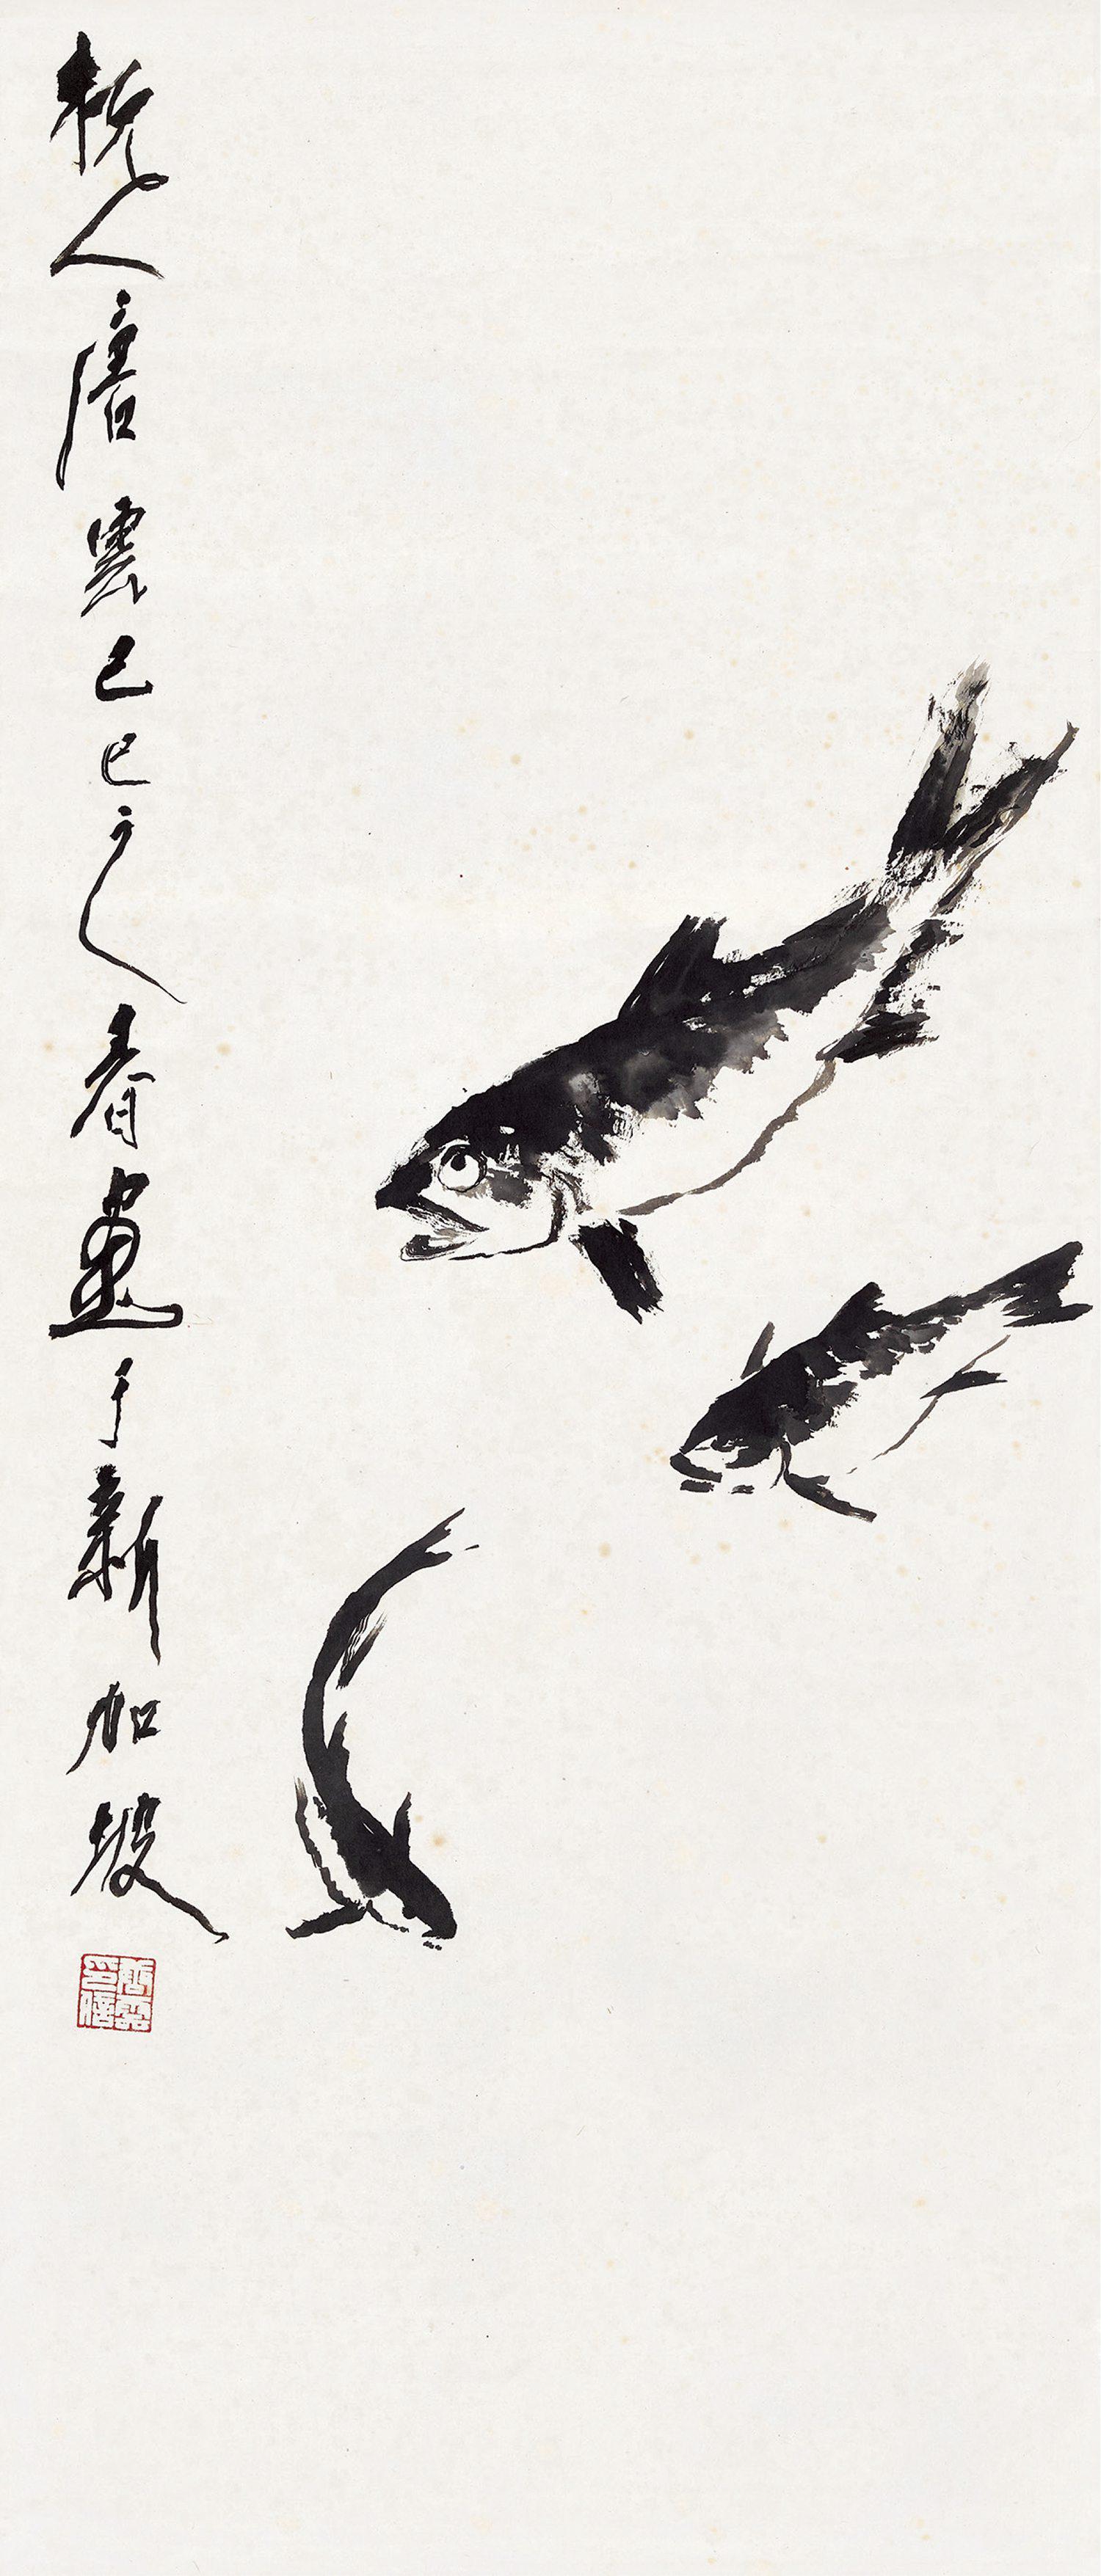 杭人唐雲己巳之春畫于新加坡
唐雲印信